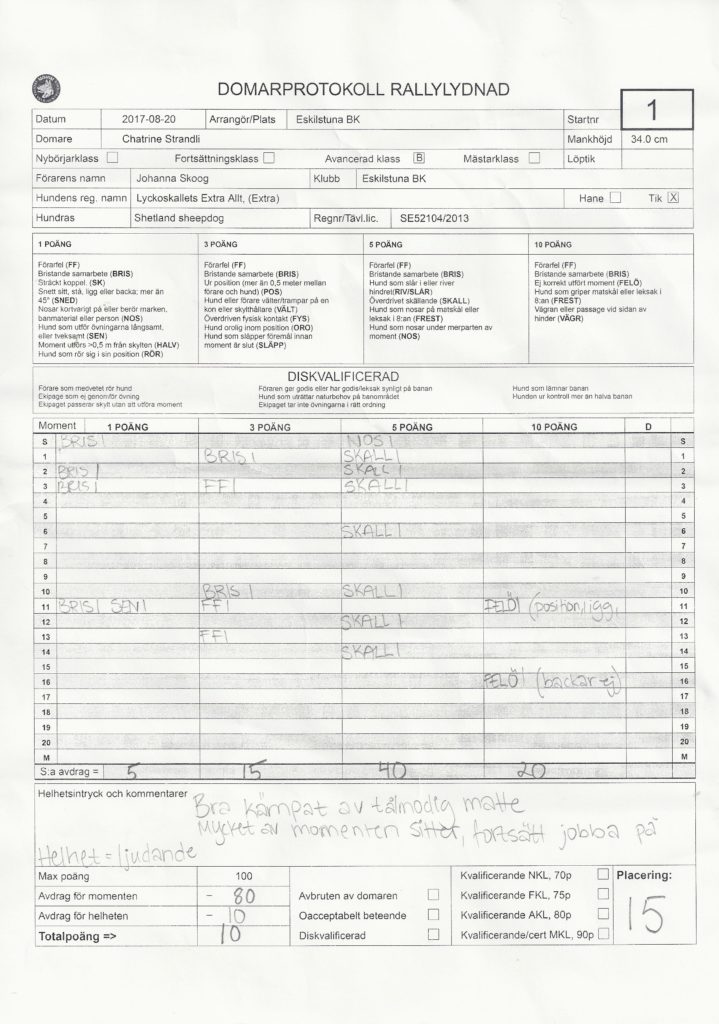 DOMARPROTOKOLL RALLYLYDNAD
Datum 2017-08-20 Arrangör/Plats Eskilstuna BK Startnr 1
Domare Chatrine Strandli Mankhöjd 34.0 cm
Nybörjarklass Fortsättningsklass Avancerad klass B Mästarklass Löptik
Förarens namn Johanna Skoog Klubb Eskilstuna BK
Hundens reg. namn Lyckoskallets Extra Allt, (Extra) Hane Tik X
Hundras Shetland sheepdog Regnr/Tävl.lic. SE52104/2013
1 POÄNG
Förarfel (FF)
Bristande samarbete (BRIS)
Sträckt koppel. (SK)
Snett sitt, stå, ligg eller backa; mer än
45° (SNED)
Nosar kortvarigt på eller berör marken,
banmaterial eller person (NOS)
Hund som utför övningarna långsamt,
eller tveksamt (SEN)
Moment utförs >0,5 m från skylten (HALV)
Hund som rör sig i sin position (RÖR)
3 POÄNG
Förarfel (FF)
Bristande samarbete (BRIS)
Ur position (mer än 0,5 meter mellan
förare och hund) (POS)
Hund eller förare välter/trampar på en
kon eller skylthållare (VÄLT)
Överdriven fysisk kontakt (FYS)
Hund orolig inom position (ORO)
Hund som släpper föremål innan
moment är slut (SLÄPP)
5 POÄNG
Förarfel (FF)
Bristande samarbete (BRIS)
Hund som slår i eller river
hindret(RIV/SLÅR)
Överdrivet skällande (SKALL)
Hund som nosar på matskål eller
leksak i 8:an (FREST)
Hund som nosar under merparten av
moment (NOS)
10 POÄNG
Förarfel (FF)
Bristande samarbete (BRIS)
Ej korrekt utfört moment (FELÖ)
Hund som griper matskål eller leksak i
8:an (FREST)
Vägran eller passage vid sidan av
hinder (VÄGR)
DISKVALIFICERAD
Förare som medvetet rör hund
Ekipage som ej genomför övning
Ekipaget passerar skylt utan att utföra moment
Föraren ger godis eller har godis/leksak synligt på banan
Hund som uträttar naturbehov på banområdet
Ekipaget tar inte övningarna i rätt ordning
Hund som lämnar banan
Hunden ur kontroll mer än halva banan
Moment 1 POÄNG 3 POÄNG 5 POÄNG 10 POÄNG D
S BRIS I NOS I S
1 BRIS I SKALL I 1
2 BRIS I SKALL I 2
3 BRIS I FF I SKALL I 3
4 4
5 5
6 SKALL I 6
7 7
8 8
9 9
10 BRIS I SKALL I 10
11 BRIS I SEN I FF I FELÖ I (position, ligg, 11
12 SKALL I 12
13 FF I 13
14 SKALL I 14
15 15
16 FELÖ I (backar ej) 16
17 17
18 18
19 19
20 20
M M
S:a avdrag = 5 15 40 20
Helhetsintryck och kommentarer Bra kämpat av tålmodig matte
Mycket av momenten sitter, fortsätt jobba på
Helhet = ljudande
Max poäng 100
Avdrag för momenten - 80
Avdrag för helheten - 10
Totalpoäng => 10
Avbruten av domaren
Oacceptabelt beteende
Diskvalificerad
Kvalificerande NKL, 70p
Kvalificerande FKL, 75p
Kvalificerande AKL, 80p
Kvalificerande/cert MKL, 90p
Placering:
15